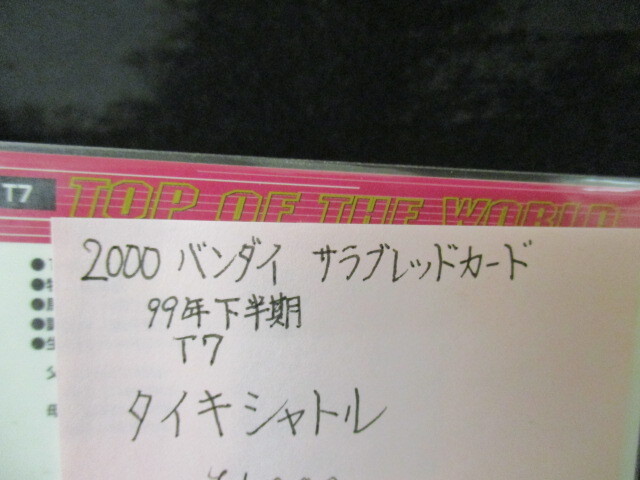 T7 TOP OF THE WORLD
2000 バンダイ サラブレッドカード
99年下半期
T7
タイキシャトル